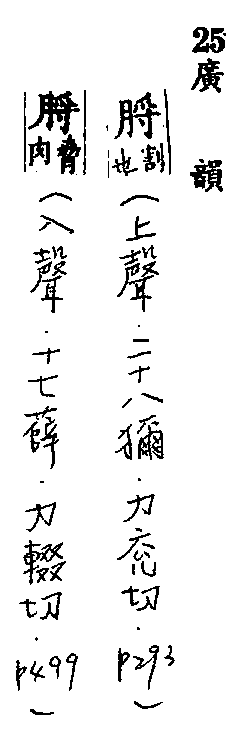 25廣韻
脟割也(上聲.二十八獮.力兖切.p293)
脟脅肉(入聲.十七薛.力輟切.p499)